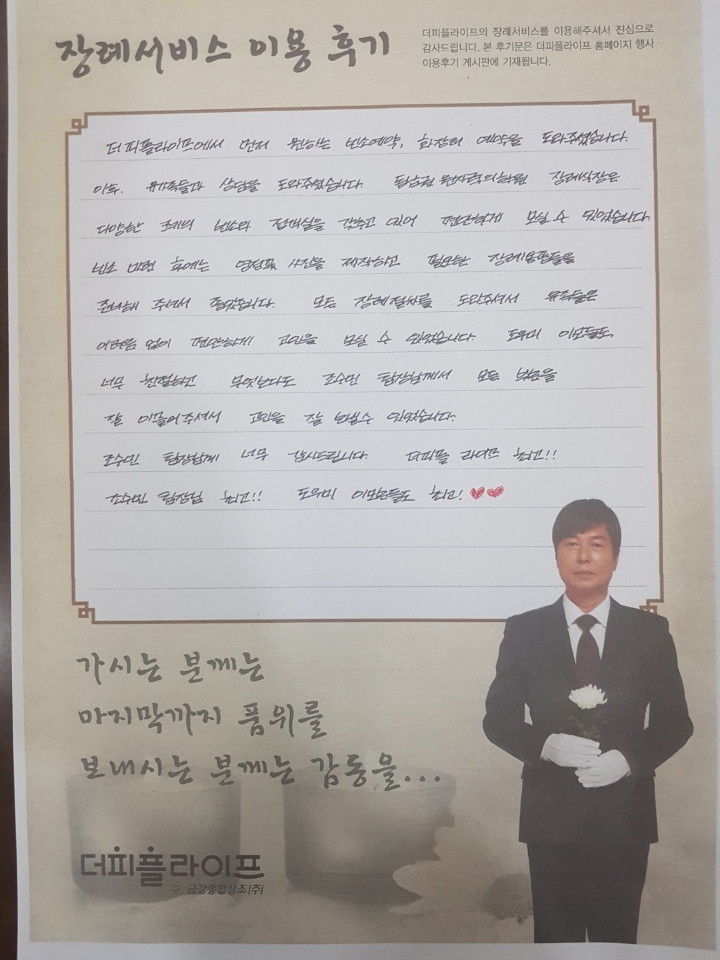 장례서비스 이용 후기
더피플라이프의 장례서비스를 이용해주셔서 진심으로
감사드립니다. 본 후기문은 더피플라이프 홈페이지 행사
이용후기 게시판에 기재됩니다.
더피플라이프에서 먼저 원하는 빈소예약, 화장터 예약을 도와주셨습니다.
이후, 유가족들과 상담을 도와주셨습니다. 원자력의학원 장례식장은
다양한 크기의 빈소와 접객실을 갖추고 있어 편안하게 모실 수 있었습니다
빈소 마련 후에는 영정표, 사진을 제작하고 필요한 장례용품들을
준비해 주셔서 좋았습니다. 모든 장례절차를 도와주셔서 유족들은
어려움 없이 편안하게 고인을 모실 수 있었습니다. 도우미 이모들도,
너무 친절하고 무엇보다도 조수민 팀장님께서 모든 부분을
잘 이끌어주셔서 고인을 잘 보낼수 있었습니다.
조수민 팀장님께 너무 감사드립니다. 더피플 라이프 최고!!
조수민 팀장님 최고!! 도우미 이모분들도 최고!
가시는 분께는
마지막까지 품위를
보내시는 분께는 감동을...
더피플라이프
구. 금강종합상조(주)